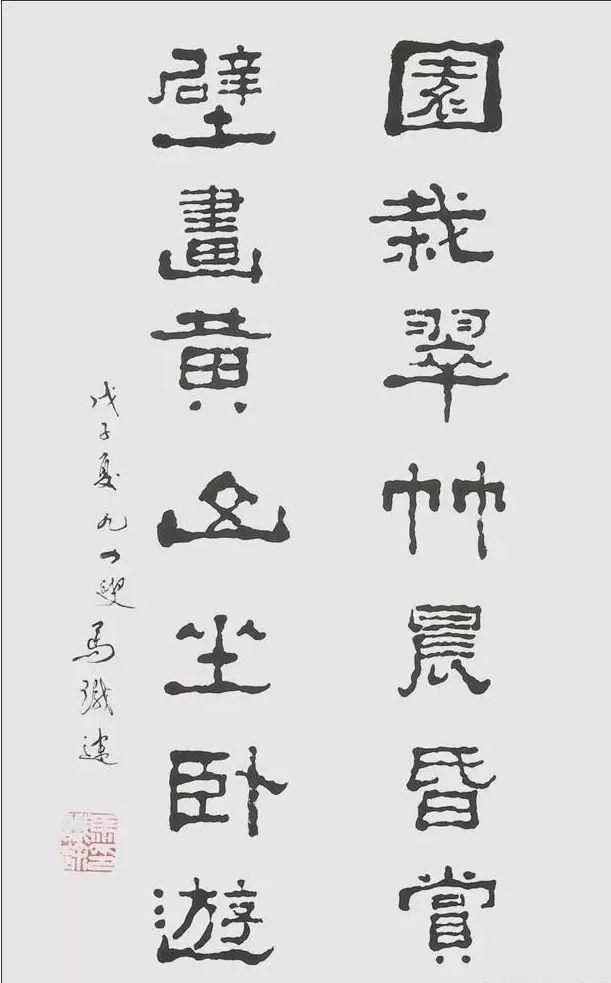 園栽翠竹晨昏賞
壁畫黃山坐卧遊
戊子夏九四叟馬識途